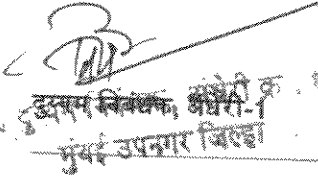 दुय्यम निबंधक, अंधेरी-1
अंधेरी क्र.
मुंबई उपनगर जिल्हा